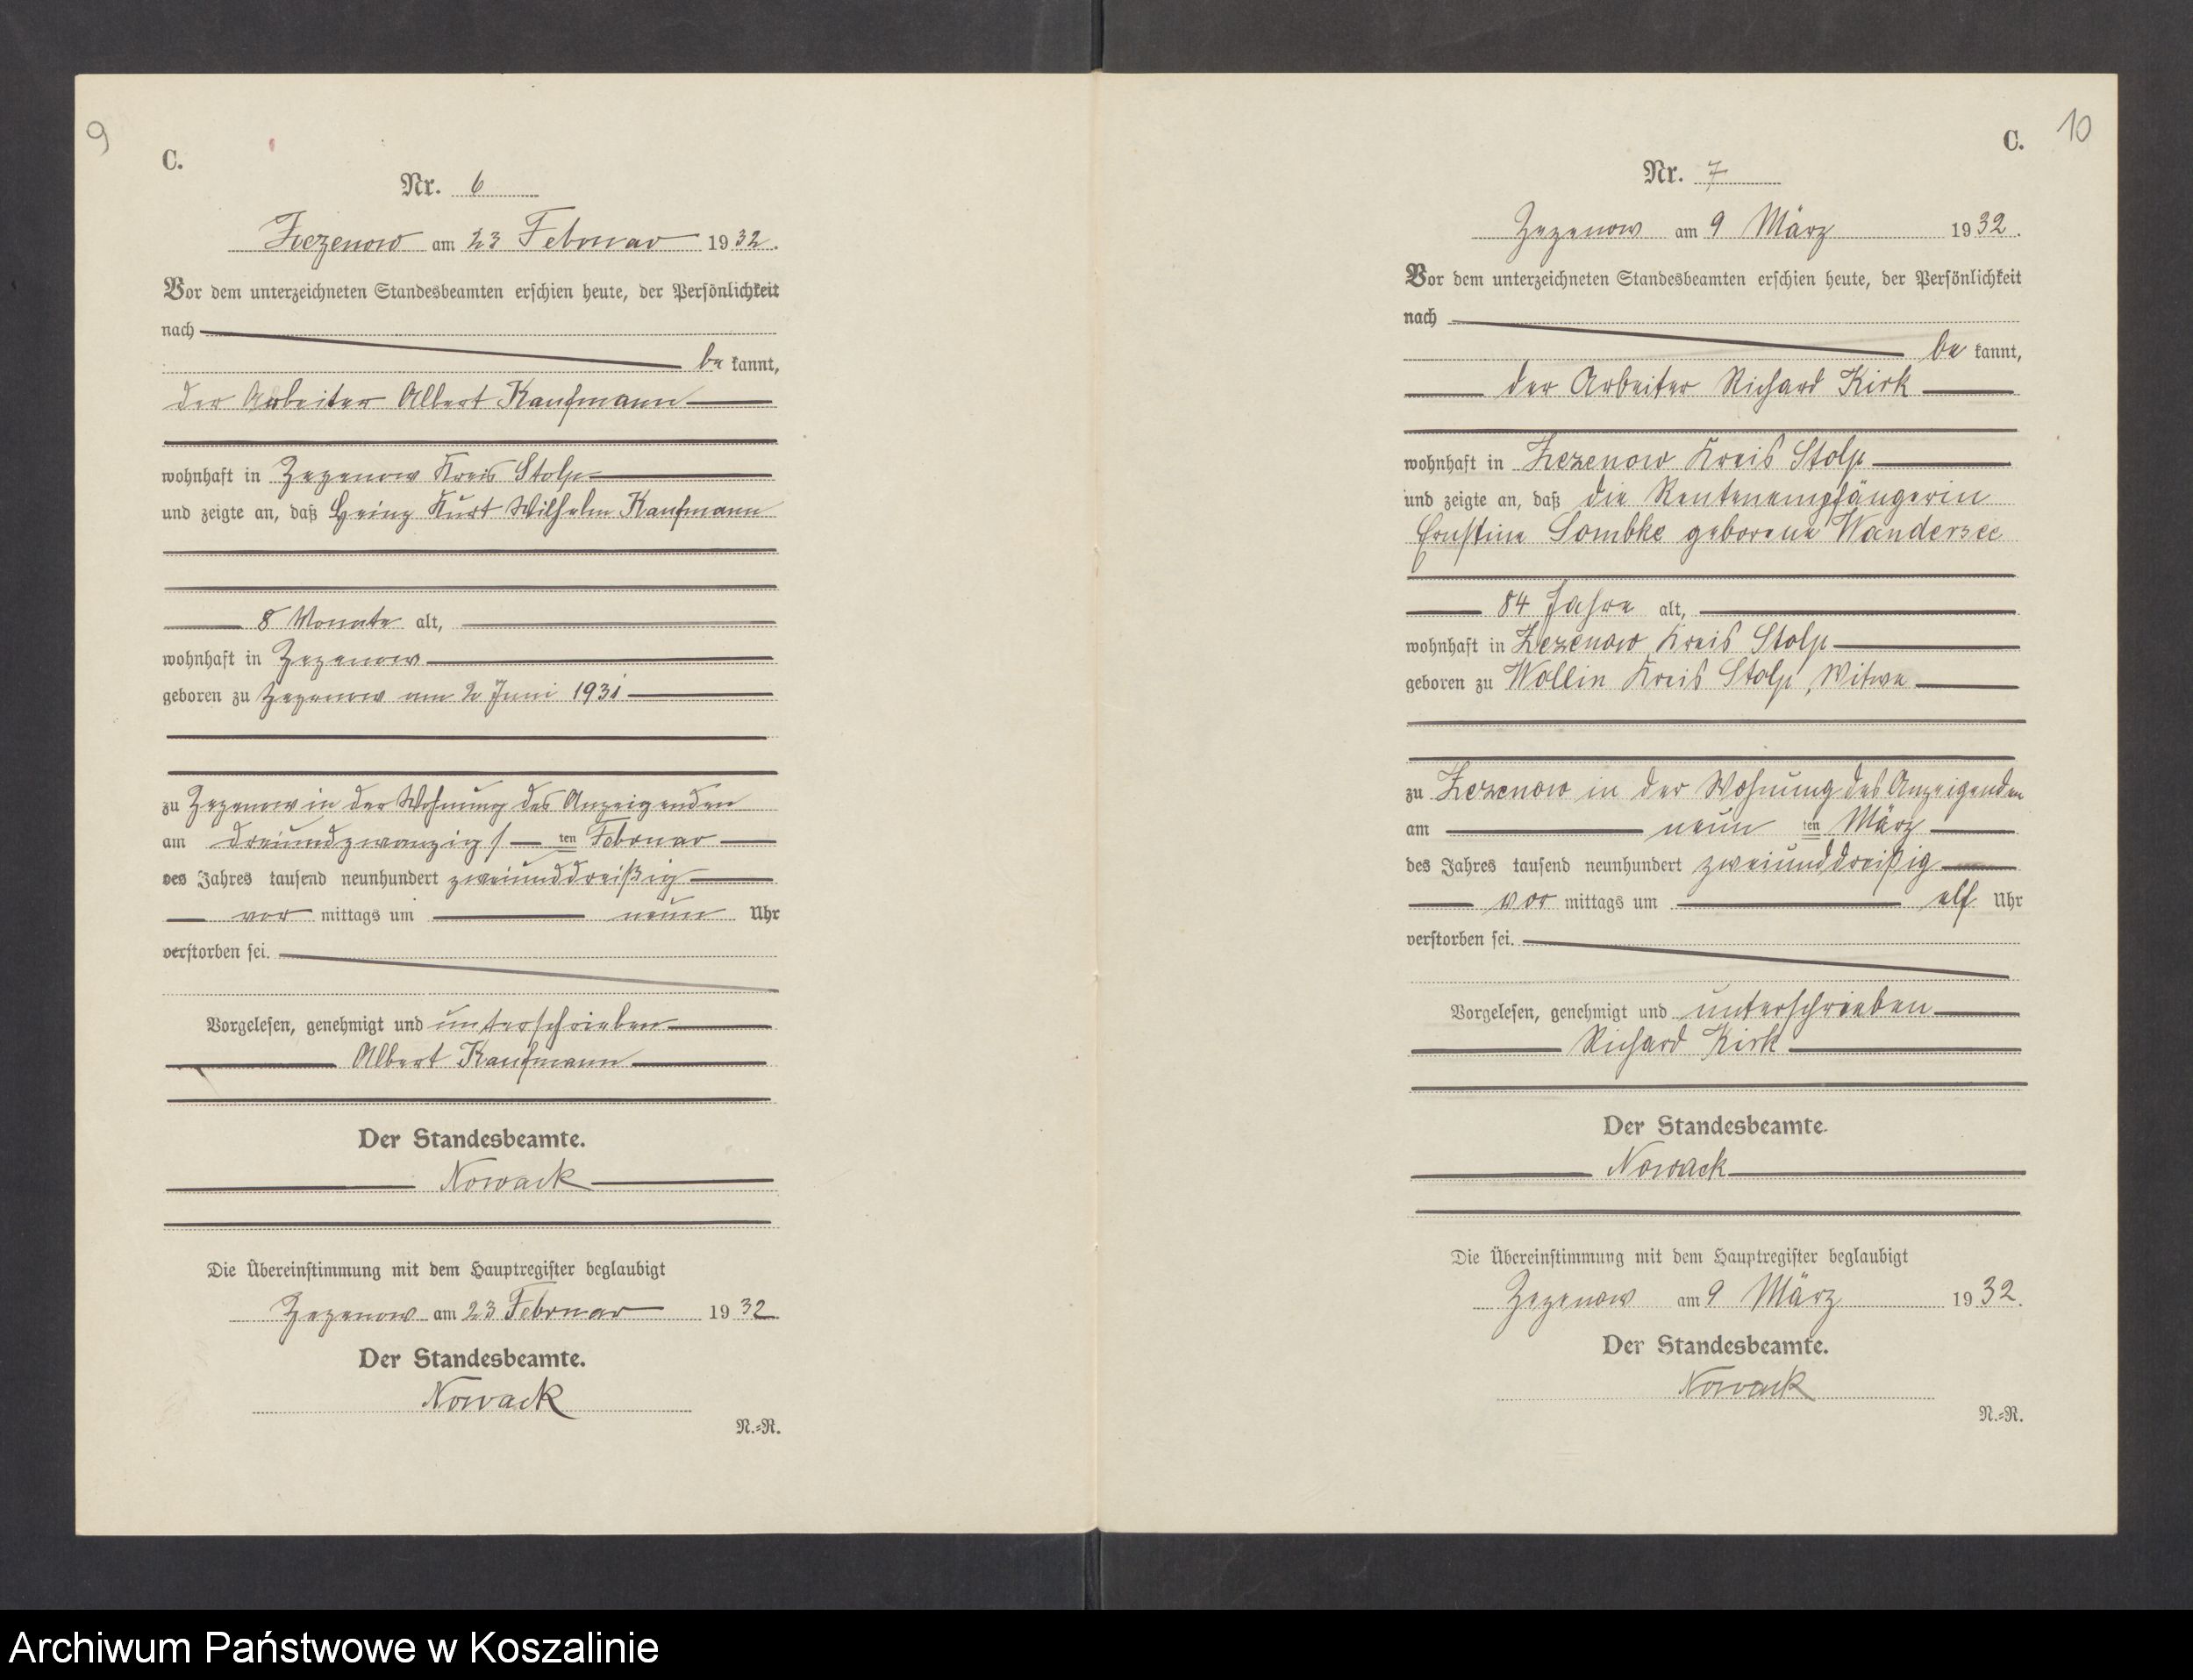 9
C.
Nr. 6
Zezenow am 23 Februar 1932.
Vor dem unterzeichneten Standesbeamten erschien heute, der Persönlichkeit
nach
be kannt,
der Arbeiter Albert Kaufmann
wohnhaft in Zezenow Kreis Stolp
und zeigte an, daß Heinz Kurt Wilhelm Kaufmann
8 Monate alt,
wohnhaft in Zezenow
geboren zu Zezenow am 2 Juni 1931
zu Zezenow in der Wohnung des Anzeigenden
am dreiundzwanzigs ten Februar
des Jahres tausend neunhundert zweiunddreißig
vor mittags um neun Uhr
verstorben sei.
Vorgelesen, genehmigt und unterschrieben
Albert Kaufmann
Der Standesbeamte.
Nowack
Die Übereinstimmung mit dem Hauptregister beglaubigt
Zezenow am 23 Februar 1932
Der Standesbeamte.
Nowack
N.=R.
10
C.
Nr. 7
Zezenow am 9 März 1932.
Vor dem unterzeichneten Standesbeamten erschien heute, der Persönlichkeit
nach
be kannt,
der Arbeiter Richard Kirk
wohnhaft in Zezenow Kreis Stolp
und zeigte an, daß die Rentenempfängerin
Ernstine Lombke geborene Wandersee
84 Jahre alt,
wohnhaft in Zezenow Kreis Stolp
geboren zu Wollin Kreis Stolp, Witwe
zu Zezenow in der Wohnung des Anzeigenden
am neun ten März
des Jahres tausend neunhundert zweiunddreißig
vor mittags um elf Uhr
verstorben sei.
Vorgelesen, genehmigt und unterschrieben
Richard Kirk
Der Standesbeamte.
Nowack
Die Übereinstimmung mit dem Hauptregister beglaubigt
Zezenow am 9 März 1932.
Der Standesbeamte.
Nowack
N.=R.
Archiwum Państwowe w Koszalinie